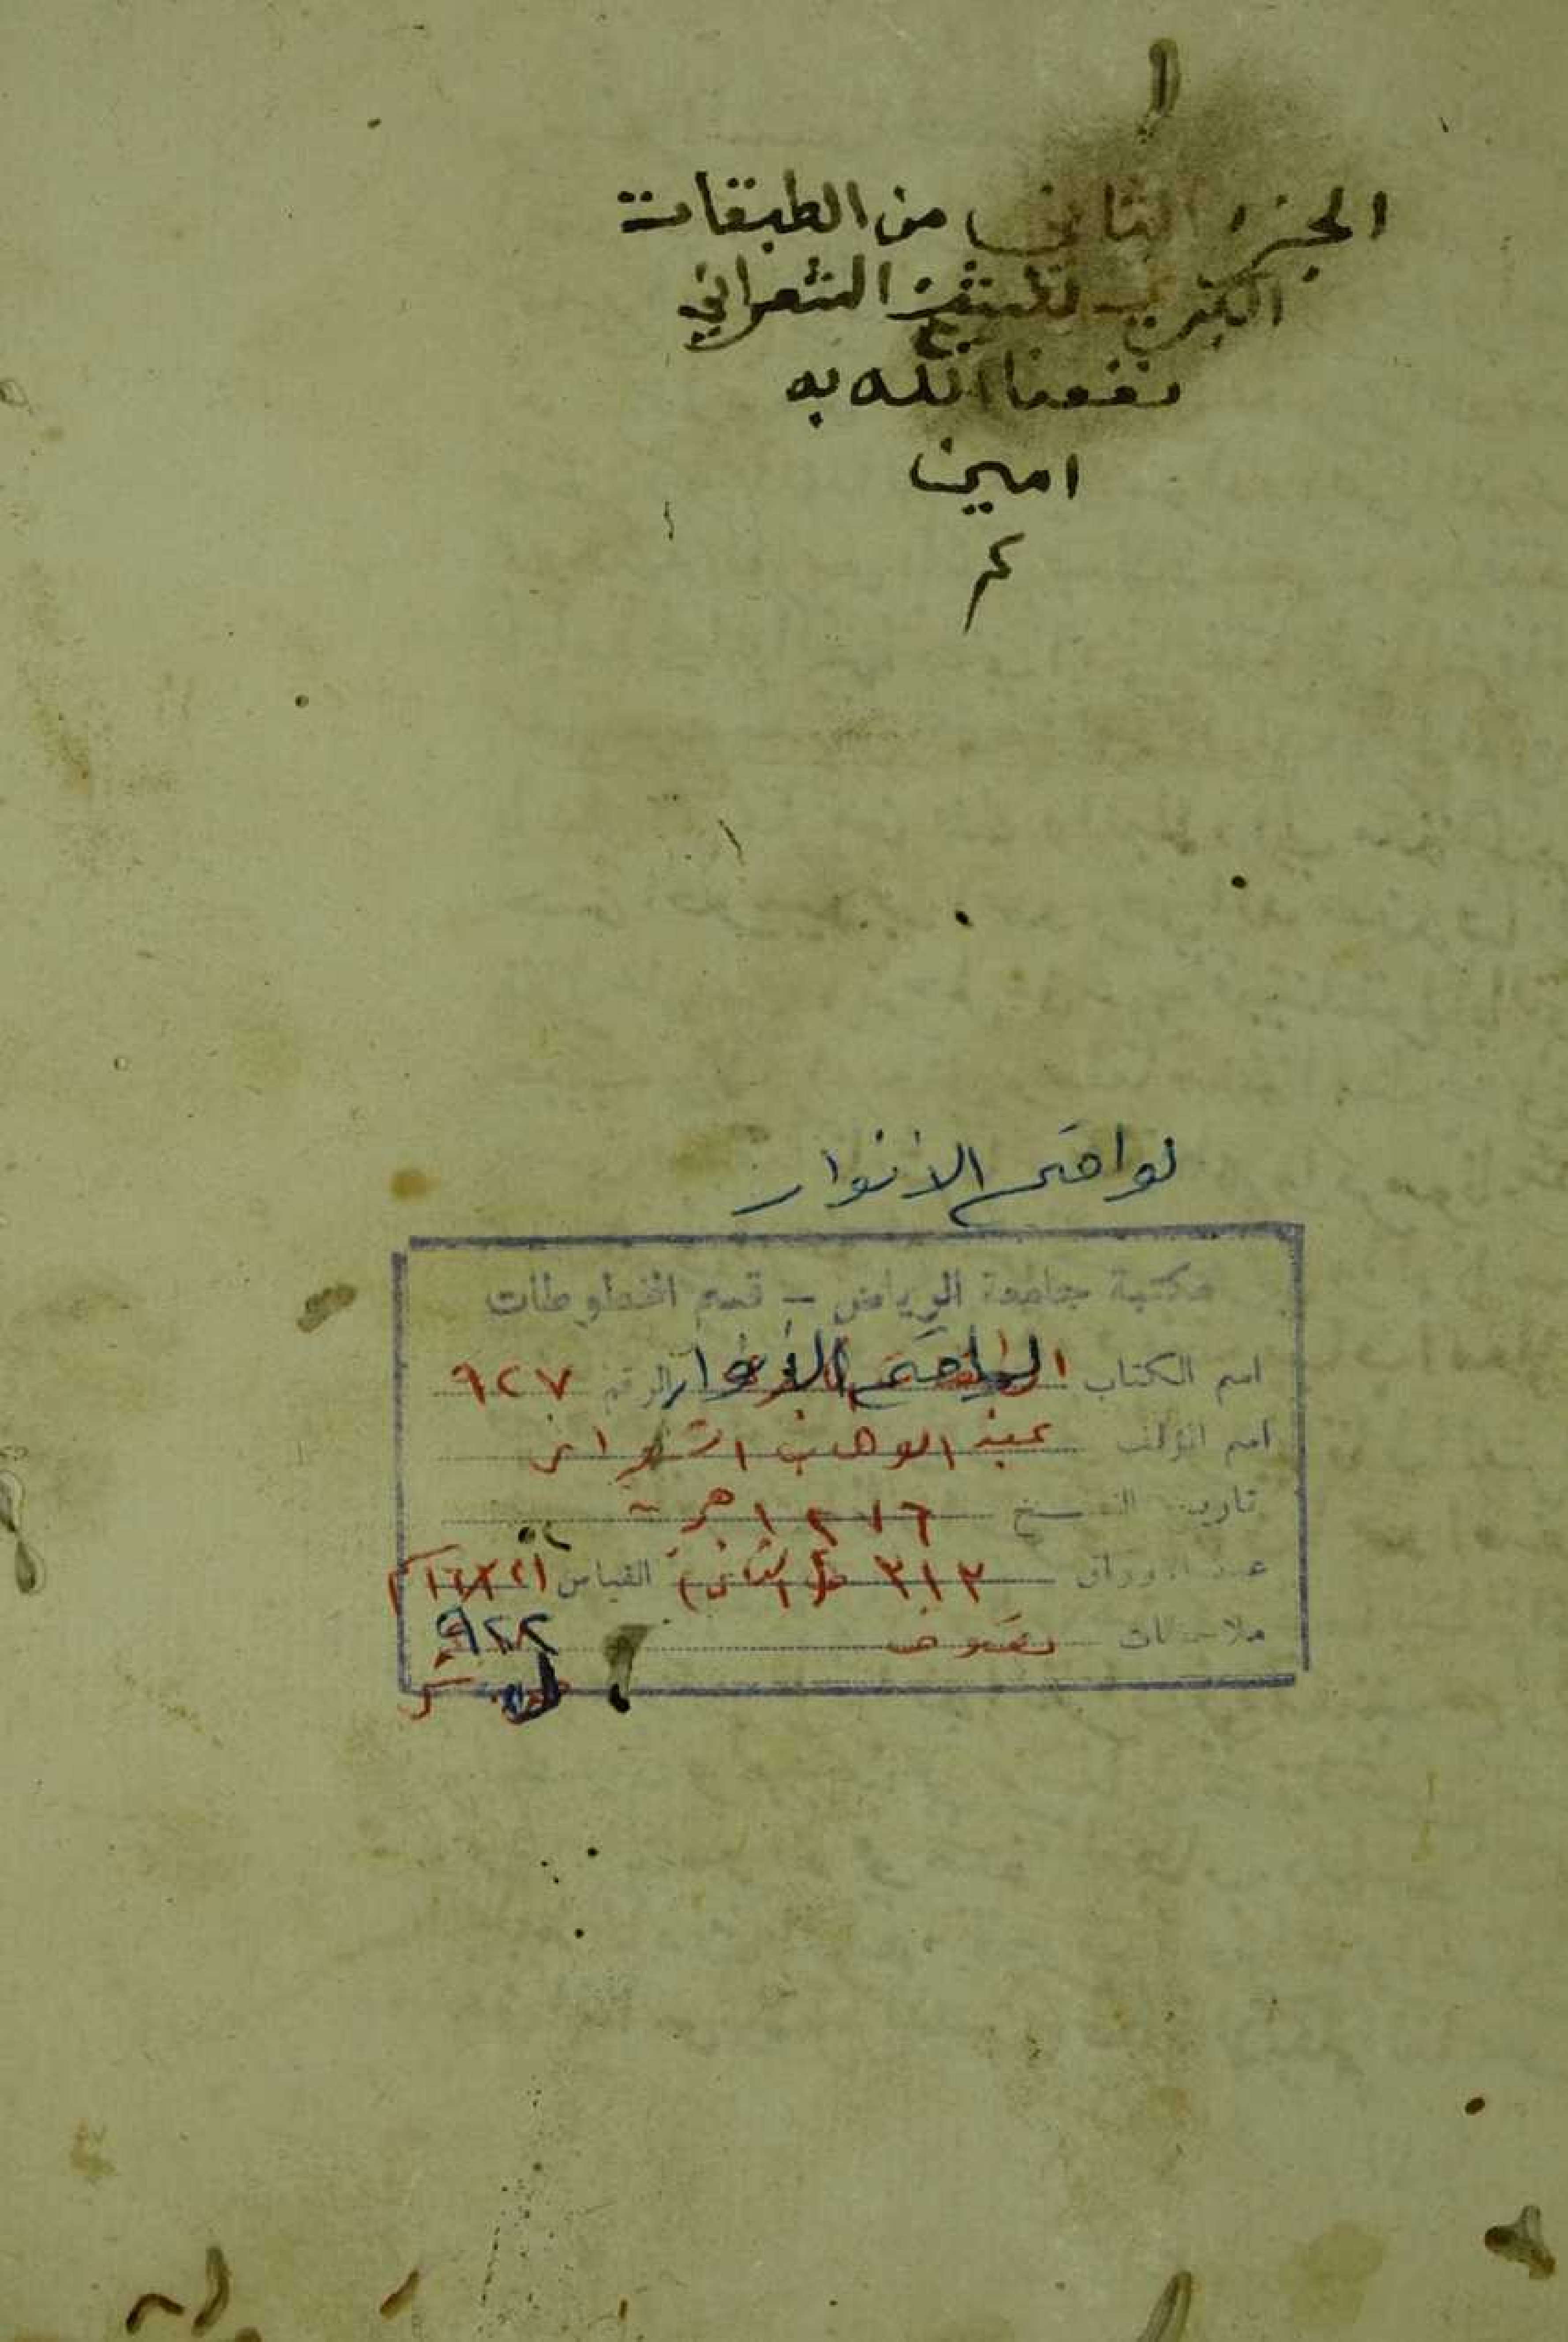 الجزء الثاني من الطبقات
الكبرى للشيخ الشعراني
نفعنا الله به
امين
م
لواقح الانوار
مكتبة جامعة الرياض – قسم المخطوطات
اسم الكتاب لواقح الانوار الرقم ٩٢٧
اسم المؤلف عبد الوهاب الشعراني
تاريخ النسخ ١٢٧٦ هـ
عدد الاوراق ٣١٣ (الثاني) القياس
ملاحظات تصوف
٩٢٢